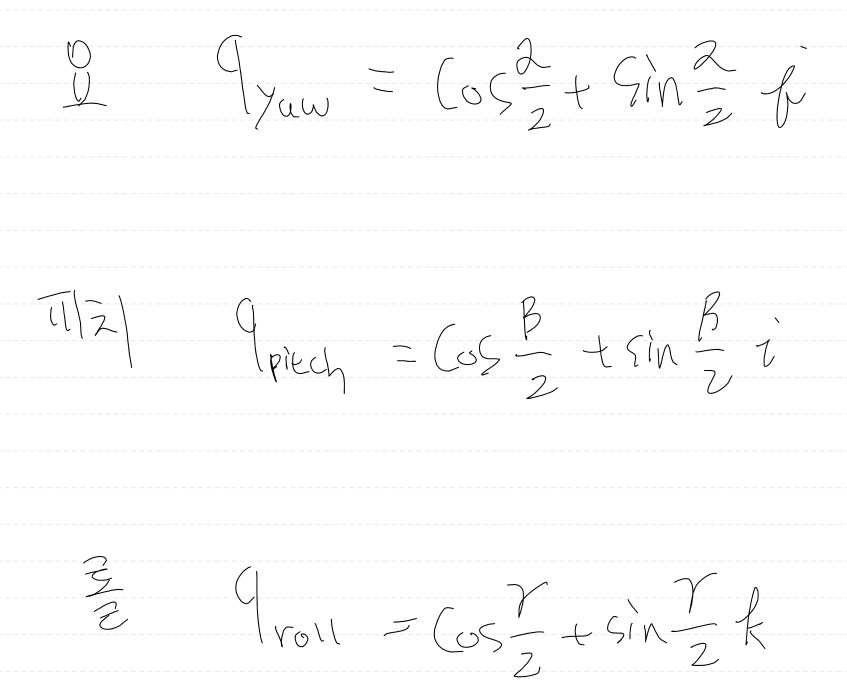 요 q_yaw = cos α/2 + sin α/2 j
피치 q_pitch = cos β/2 + sin β/2 i
롤 q_roll = cos γ/2 + sin γ/2 k